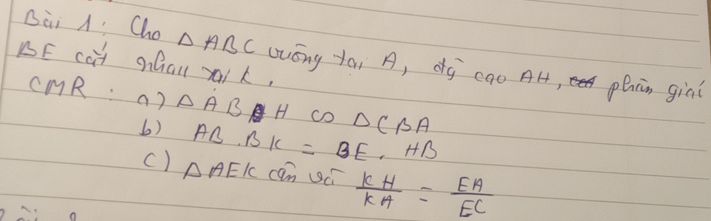 Bài 1: Cho △ABC vuông tại A, đg cao AH, phân giác
BE cắt nhau tại K.
CMR: a) △ABH ∽ △CBA
b) AB.BK = BE.HB
c) △AEK cân và KH/KA = EA/EC